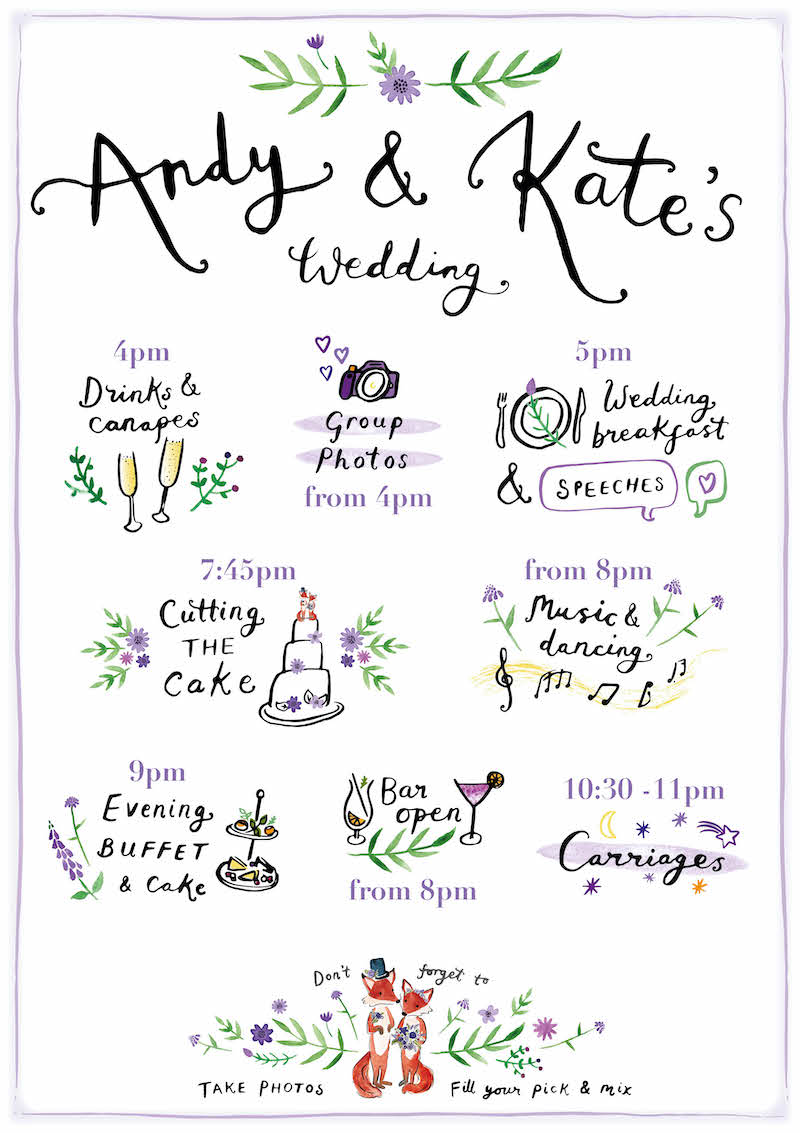 Andy & Kate's
Wedding
4pm
Drinks &
canapes
Group
Photos
from 4pm
5pm
Wedding
breakfast
& SPEECHES
7:45pm
Cutting
THE
Cake
from 8pm
Music &
dancing
9pm
Evening
BUFFET
& Cake
Bar
open
from 8pm
10:30 -11pm
Carriages
Don't forget to
TAKE PHOTOS
Fill your pick & mix